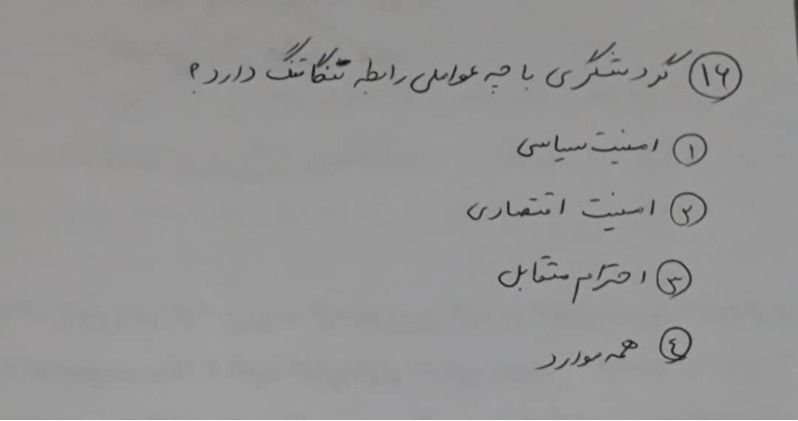 ۱۶ گردشگری با چه عواملی رابطه تنگاتنگ دارد؟
۱ امنیت سیاسی
۲ امنیت اقتصادی
۳ احترام متقابل
۴ همه موارد